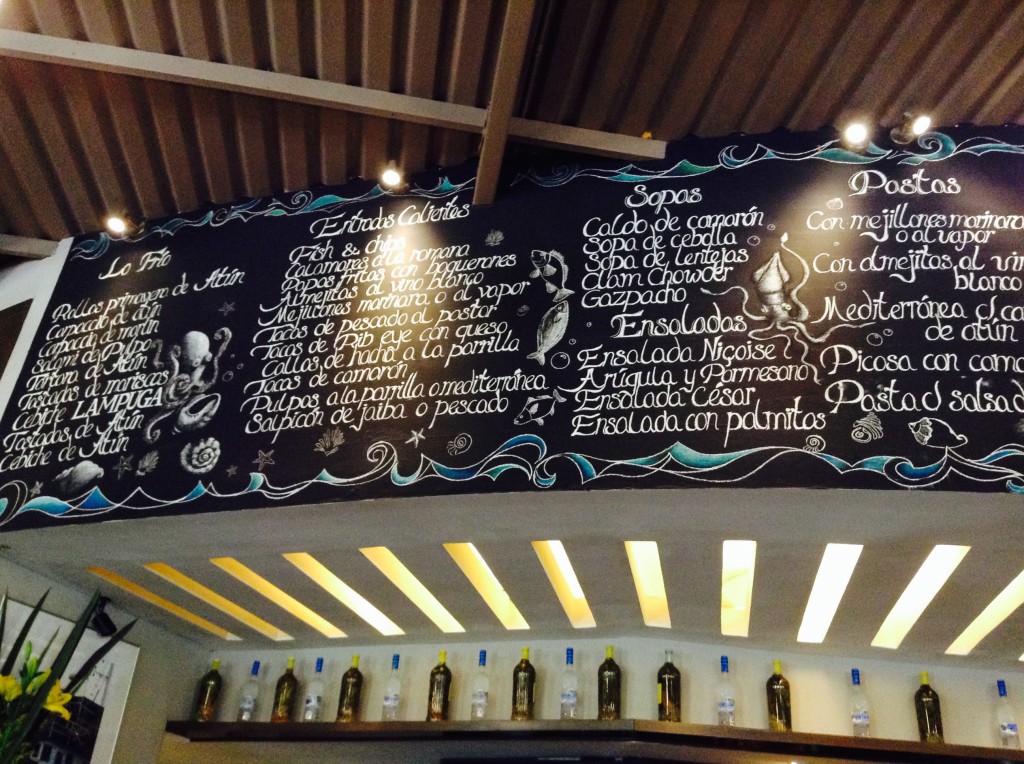 Lo Frío
Rollos primavera de Atún
Carpaccio de atún
Carpaccio de marlin
Salami de Pulpo
Tártara de Atún
Tostadas de mariscos
Cebiche LAMPUGA
Tostadas de Atún
Cebiche de Atún
Entradas Calientes
Fish & chips
Calamares a la romana
Papas fritas con boquerones
Almejitas al vino blanco
Mejillones marinara o al vapor
Tacos de pescado al pastor
Tacos de Rib eye con queso
Callos de hacha a la parrilla
Tacos de camarón
Pulpos a la parrilla o mediterránea
Salpicón de jaiba o pescado
Sopas
Caldo de camarón
Sopa de cebolla
Sopa de lentejas
Clam Chowder
Gazpacho
Ensaladas
Ensalada Niçoise
Arúgula y Parmesano
Ensalada César
Ensalada con palmitos
Pastas
Con mejillones marinara
o al vapor
Con almejitas al vin
blanco
Mediterránea c/ ca
de atún
Picosa con cama
Pasta d salsa